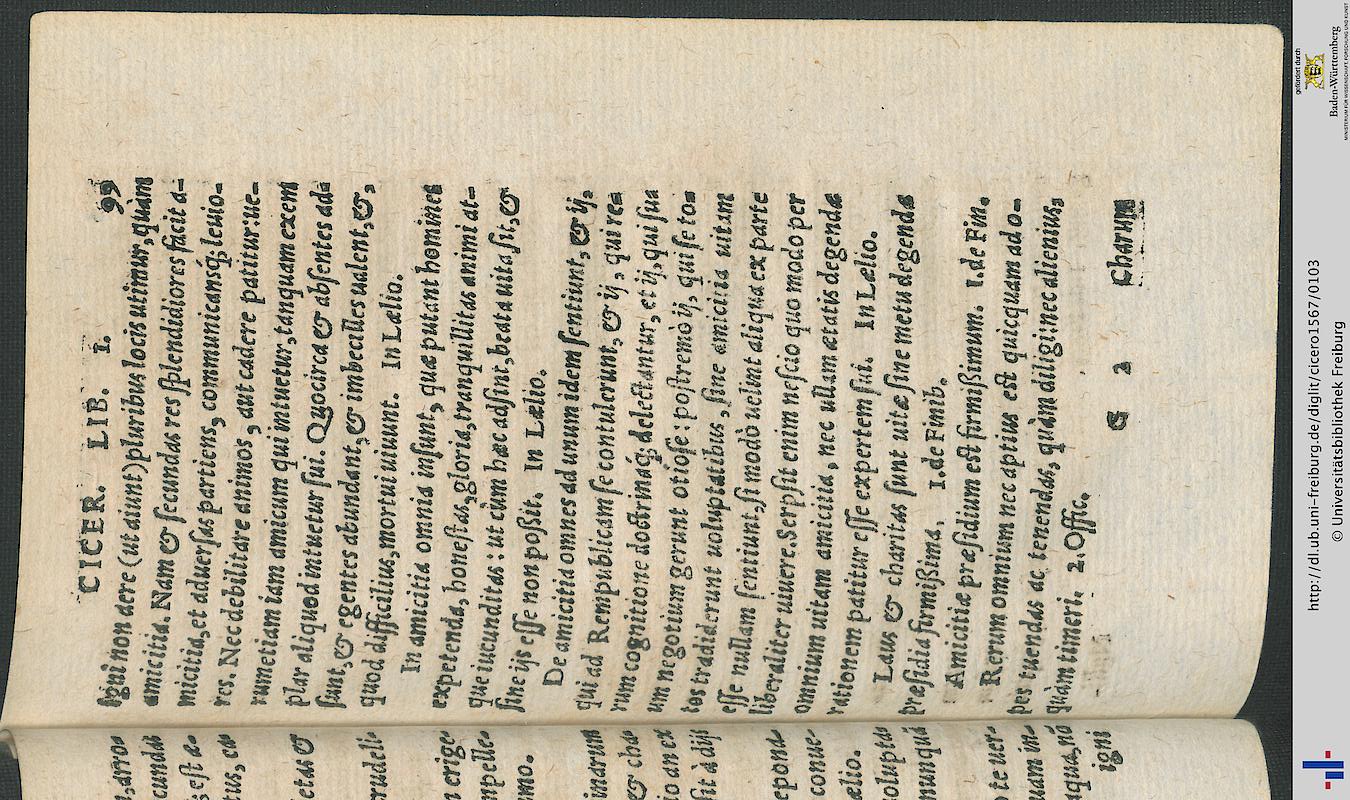 CICER. LIB. I. 99
igni non aere (ut aiunt) pluribus locis utimur, quàm
amicitia. Nam & secundas res splendidiores facit a-
micitia, et aduersas partiens, communicansq́; leuio-
res. Nec debilitare animos, aut cadere patitur: ue-
rum etiam iam amicum qui intuetur, tanquam exem
plar aliquod intuetur sui. Quocirca & absentes ad
sunt, & egentes abundant, & imbecilles ualent, &,
quod difficilius, mortui uiuunt. In Lælio.
In amicitia omnia insunt, quæ putant homines
expetenda, honestas, gloria, tranquillitas animi at-
que iucunditas: ut cùm hæc adsint, beata uita sit, &
sine ijs esse non poßit. In Lælio.
De amicitia omnes ad unum idem sentiunt, & ij,
qui ad Rempublicam se contulerunt, & ij, qui re=
rum cognitione doctrinaq́; delectantur, et ij, qui sua
um negotium gerunt otiose: postremò ij, qui se to=
tos tradiderunt uoluptatibus, sine amicitia uitam
esse nullam sentiunt, si modò uelint aliqua ex parte
liberaliter uiuere. Serpsit enim nescio quo modo per
omnium uitam amicitia, nec ullam ætatis degendæ
rationem patitur esse expertem sui. In Lælio.
Laus & charitas sunt uitæ sine metu degendæ
presidia firmißima. 1. de Finib.
Amicitiæ præsidium est firmißimum. 1. de Fin.
Rerum omnium nec aptius est quicquam ad o-
pes tuendas ac tenendas, quàm diligi: nec alienius,
quàm timeri. 2. Offic.
G 2 Charum
n, arro=
cundas
est a=
tus, ea
etas &
rudeli-
n erige
mpelle-
mo.
inarum
& cha=
io an ex
sit à dijs
epond-
conue-
ælio.
olupta=
nunquā
o te uer-
uam in-
nqua, nō
igni
gefördert durch
Baden-Württemberg
MINISTERIUM FÜR WISSENSCHAFT, FORSCHUNG UND KUNST
http://dl.ub.uni-freiburg.de/diglit/cicero1567/0103
© Universitätsbibliothek Freiburg